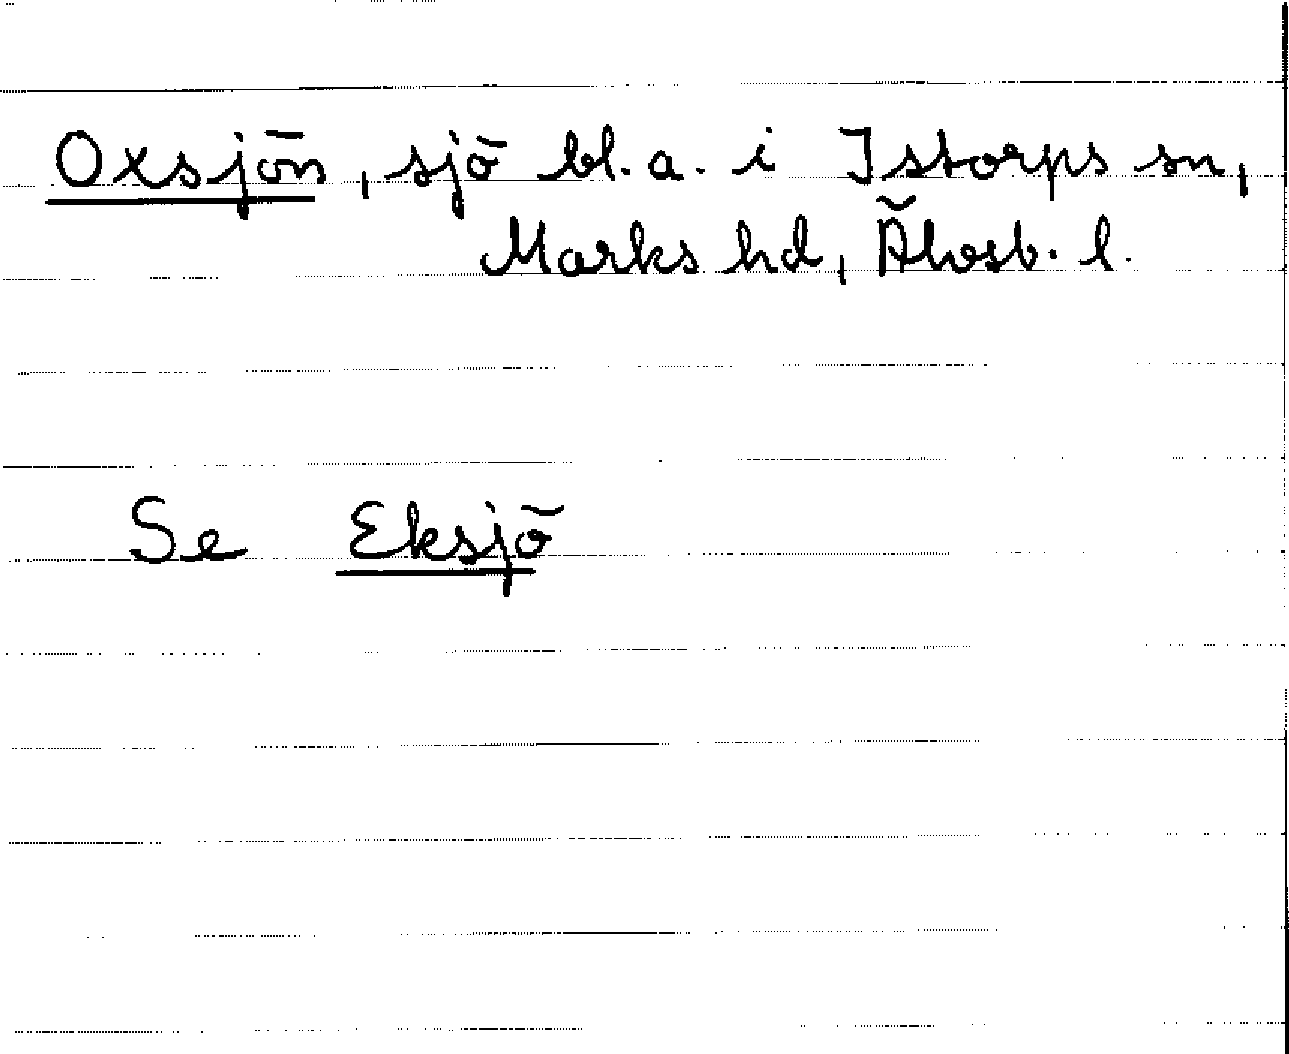 Oxsjön, sjö bl. a. i Istorps sn,
Marks hd, Älvsb. l.
Se Eksjö